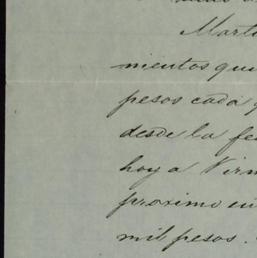 Marti
mientos qui
pesos cada
desde la fe
hoy a Firm
proximo en
mil pesos.